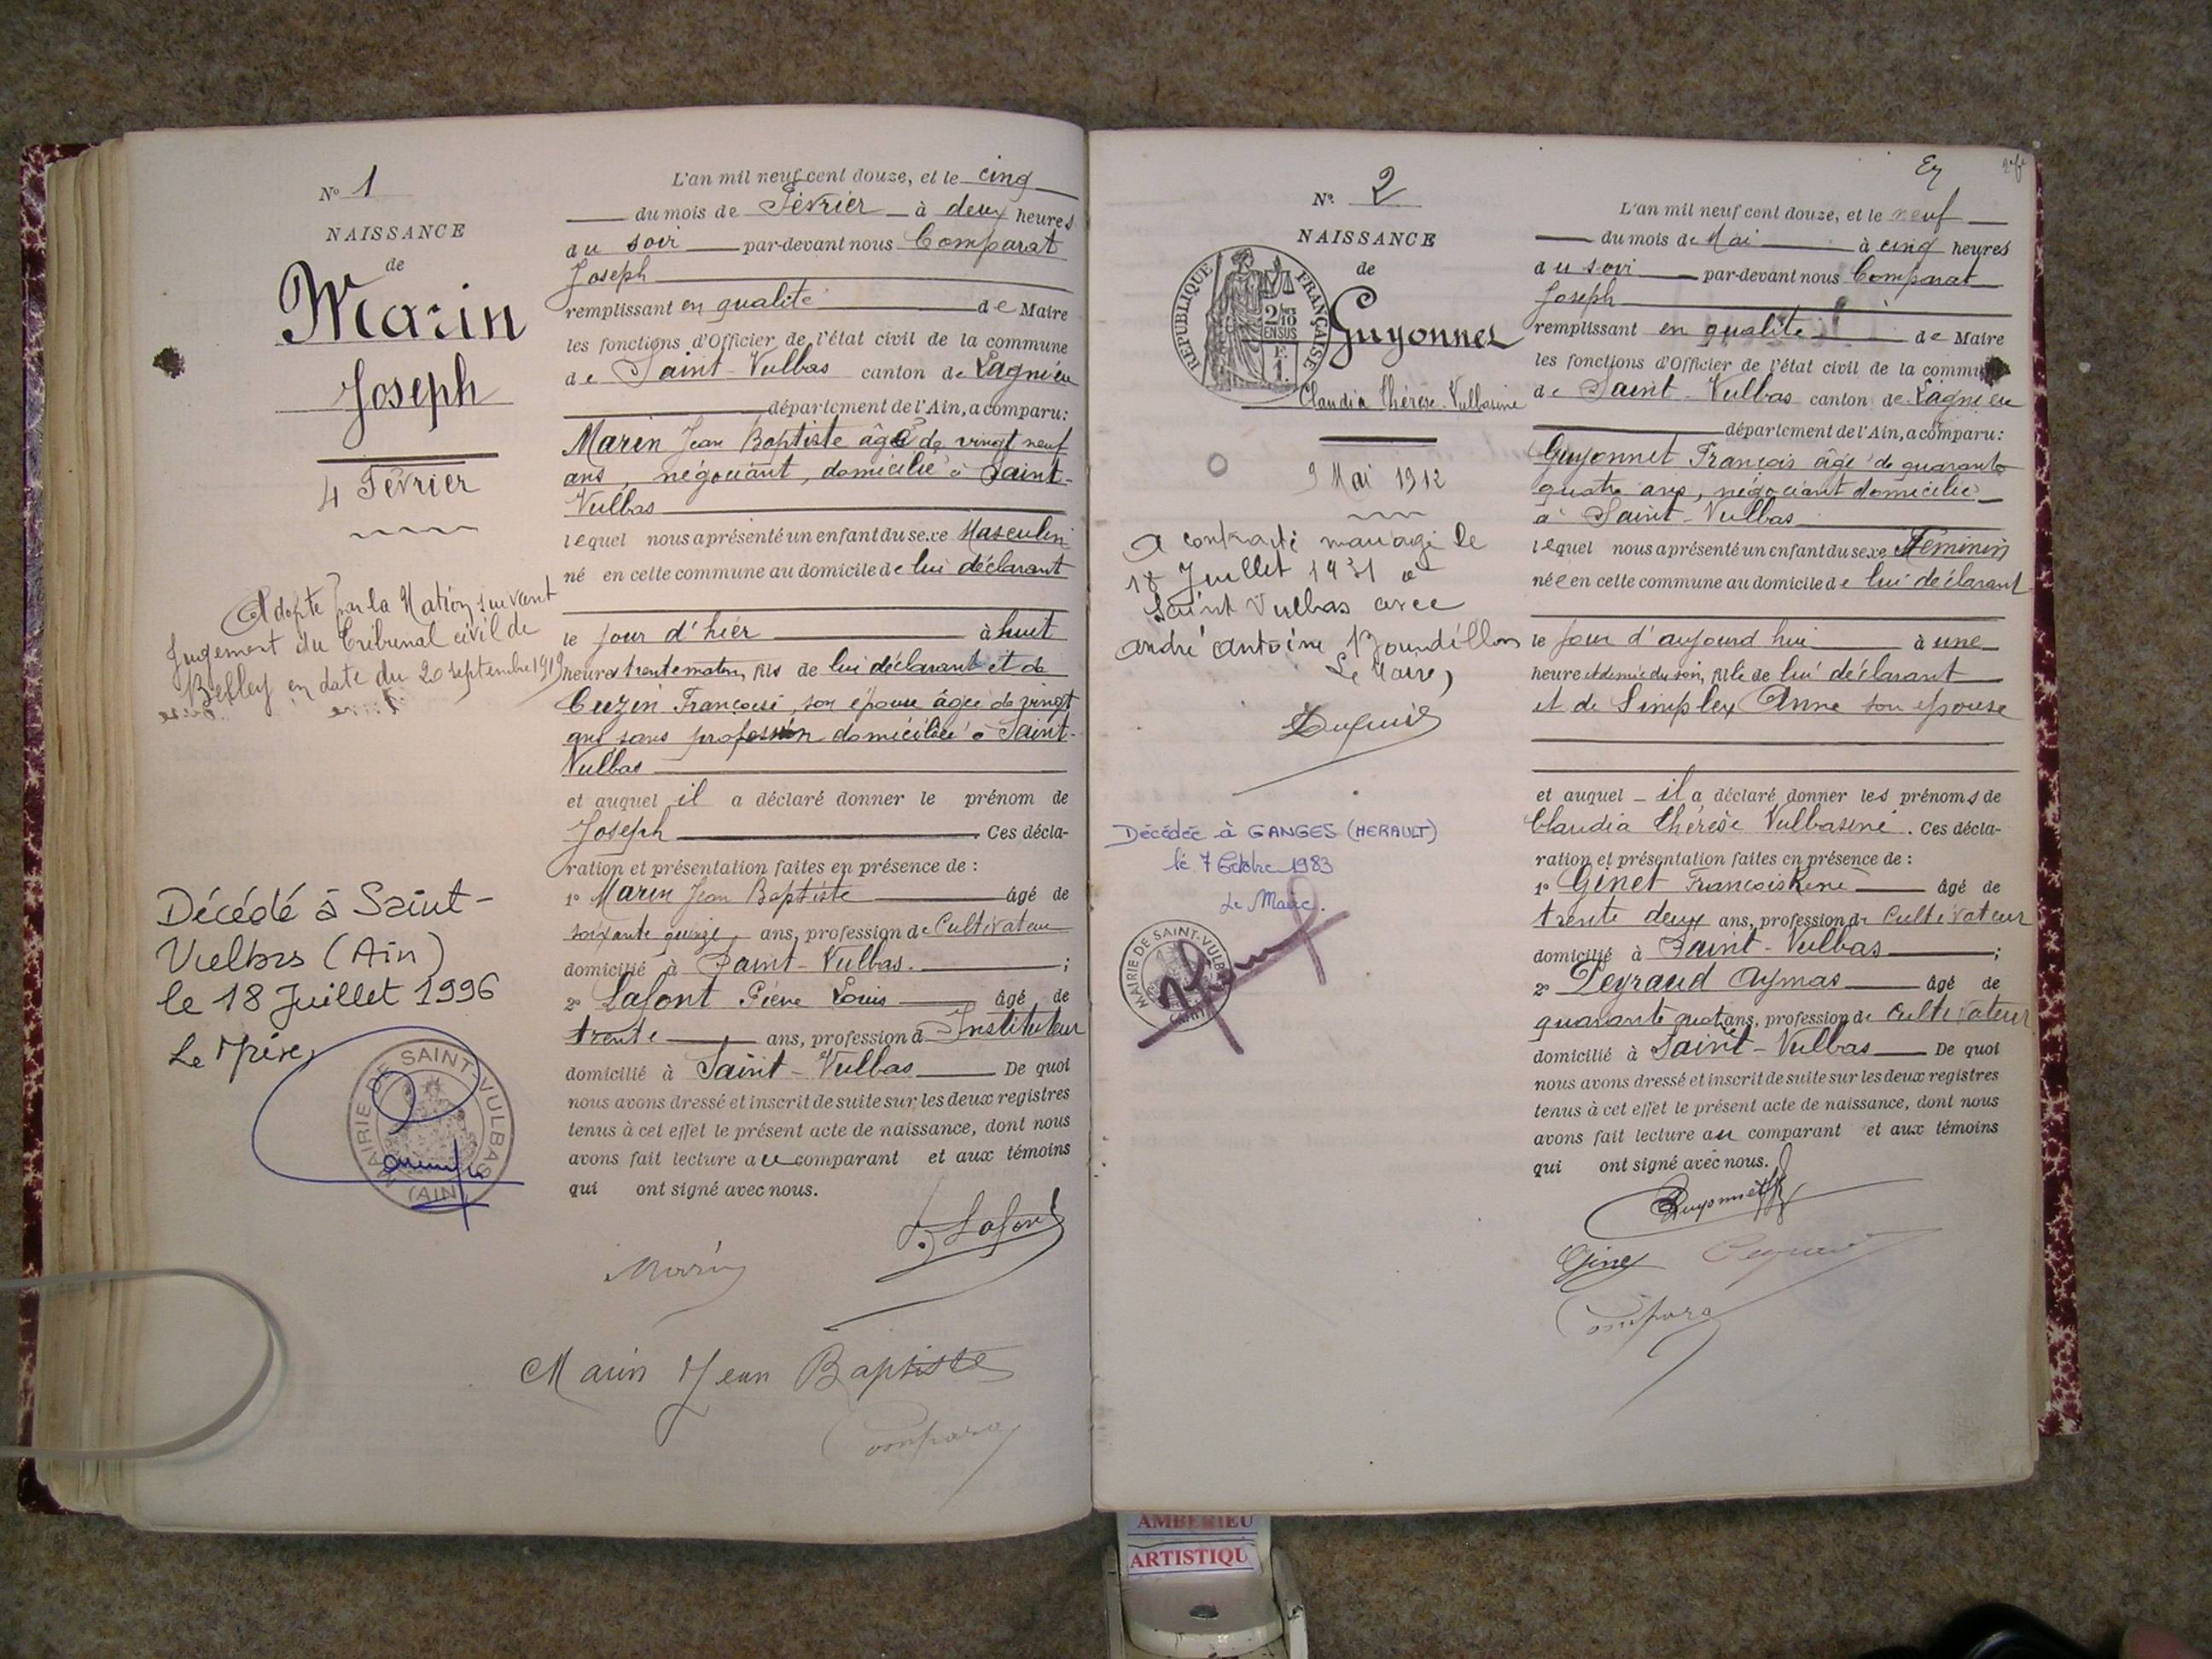 Nº 1
NAISSANCE
de
Marin
Joseph
4 Février
Adopté par la Nation suivant
Jugement du Tribunal civil de
Belley en date du 20 septembre 1919
Décédé à Saint-
Vulbas (Ain)
le 18 Juillet 1996
Le Maire,
MAIRIE DE SAINT-VULBAS
(AIN)
L'an mil neuf cent douze, et le cinq
du mois de Février à deux heures
du soir par-devant nous Comparat
Joseph
remplissant en qualité de Maire
les fonctions d'Officier de l'état civil de la commune
de Saint-Vulbas canton de Lagnieu
département de l'Ain, a comparu:
Marin Jean Baptiste âgé de vingt neuf
ans, négociant, domicilié à Saint-
Vulbas
lequel nous a présenté un enfant du sexe Masculin
né en cette commune au domicile de lui déclarant
le jour d'hier à huit
heures trente matin, fils de lui déclarant et de
Cuzin Françoise, son épouse âgée de vingt
ans sans profession domiciliée à Saint-
Vulbas
et auquel il a déclaré donner le prénom de
Joseph. Ces décla-
ration et présentation faites en présence de :
1º Marin Jean Baptiste âgé de
soixante quinze ans, profession de Cultivateur
domicilié à Saint-Vulbas. ;
2º Lafont Pierre Louis âgé de
trente ans, profession d'Instituteur
domicilié à Saint-Vulbas De quoi
nous avons dressé et inscrit de suite sur les deux registres
tenus à cet effet le présent acte de naissance, dont nous
avons fait lecture au comparant et aux témoins
qui ont signé avec nous.
Lafont
Marin
Marin Jean Baptiste
Comparat
Nº 2
NAISSANCE
de
RÉPUBLIQUE FRANÇAISE
2/10
EN SUS
F.
1.
Guyonnet
Claudia Thérèse Vulbasine
9 Mai 1912
A contracté mariage le
18 Juillet 1931 à
Saint Vulbas avec
André Antoine Bourdillon
Le Maire,
Décédée à GANGES (HERAULT)
le 7 Octobre 1983
Le Maire.
MAIRIE DE SAINT-VULBAS
L'an mil neuf cent douze, et le neuf
du mois de Mai à cinq heures
du soir par-devant nous Comparat
Joseph
remplissant en qualité de Maire
les fonctions d'Officier de l'état civil de la commune
de Saint-Vulbas canton de Lagnieu
département de l'Ain, a comparu:
Guyonnet François âgé de quarante
quatre ans, négociant domicilié
à Saint-Vulbas
lequel nous a présenté un enfant du sexe Féminin
née en cette commune au domicile de lui déclarant
le jour d'aujourd'hui à une
heure et demie du soir, fille de lui déclarant
et de Simplex Anne son épouse
et auquel il a déclaré donner les prénoms de
Claudia Thérèse Vulbasine. Ces décla-
ration et présentation faites en présence de :
1º Ginet François René âgé de
trente deux ans, profession de Cultivateur
domicilié à Saint-Vulbas ;
2º Peyraud Aymas âgé de
quarante ans, profession de Cultivateur
domicilié à Saint-Vulbas De quoi
nous avons dressé et inscrit de suite sur les deux registres
tenus à cet effet le présent acte de naissance, dont nous
avons fait lecture au comparant et aux témoins
qui ont signé avec nous.
Guyonnet
Ginet Peyraud
Comparat
AMBERIEU
ARTISTIQU